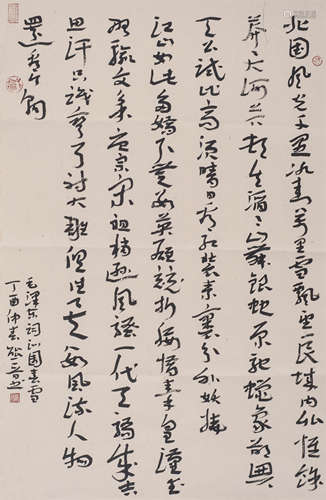 北国风光千里冰封万里雪飘望长城内外惟馀
莽莽大河上下顿失滔滔山舞银蛇原驰蜡象欲与
天公试比高须晴日看红装素裹分外妖娆
江山如此多娇引无数英雄竞折腰惜秦皇汉武
略输文采唐宗宋祖稍逊风骚一代天骄成吉
思汗只识弯弓射大雕俱往矣数风流人物
還看今朝
毛泽东词沁园春雪
丁酉仲春